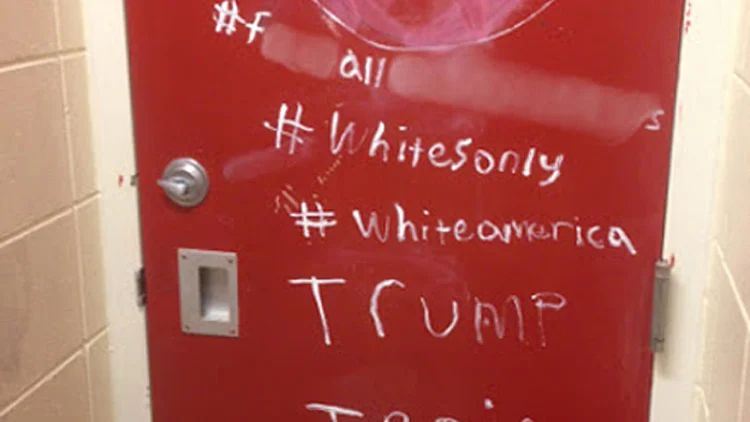 #f all s
#Whitesonly
#whiteamerica
Trump